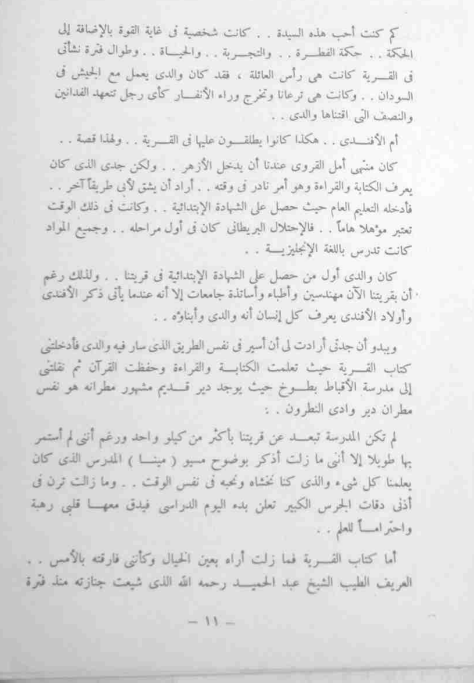 كم كنت أحب هذه السيدة . . كانت شخصية فى غاية القوة بالإضافة إلى
الحكمة . . حكمة الفطرة . . والتجربة . . والحياة . . وطوال فترة نشأتى
فى القرية كانت هى رأس العائلة ، فقد كان والدى يعمل مع الجيش فى
السودان . . وكانت هى ترعانا وتخرج وراء الأنفار كأى رجل تتعهد الفدانين
والنصف التى اقتناها والدى . .
أم الأفندى . . هكذا كانوا يطلقون عليها فى القرية . . ولهذا قصة . .
كان منتهى أمل القروى عندنا أن يدخل الأزهر . . ولكن جدى الذى كان
يعرف الكتابة والقراءة وهو أمر نادر فى وقته . . أراد أن يشق لأبى طريقاً آخر . .
فأدخله التعليم العام حيث حصل على الشهادة الإبتدائية . . وكانت فى ذلك الوقت
تعتبر مؤهلا هاماً . . فالإحتلال البريطانى كان فى أول مراحله . . وجميع المواد
كانت تدرس باللغة الإنجليزية . .
كان والدى أول من حصل على الشهادة الإبتدائية فى قريتنا . . ولذلك رغم
أن بقريتنا الآن مهندسين وأطباء وأساتذة جامعات إلا أنه عندما يأتى ذكر الأفندى
وأولاد الأفندى يعرف كل إنسان أنه والدى وأبناؤه . .
ويبدو أن جدتى أرادت لى أن أسير فى نفس الطريق الذى سار فيه والدى فأدخلتنى
كتاب القرية حيث تعلمت الكتابة والقراءة وحفظت القرآن ثم نقلتنى
إلى مدرسة الأقباط بطوخ حيث يوجد دير قديم مشهور مطرانه هو نفس
مطران دير وادى النطرون . .
لم تكن المدرسة تبعد عن قريتنا بأكثر من كيلو واحد ورغم أننى لم أستمر
بها طويلا إلا أننى ما زلت أذكر بوضوح مسيو ( مينا ) المدرس الذى كان
يعلمنا كل شىء والذى كنا نخشاه ونحبه فى نفس الوقت . . وما زالت ترن فى
أذنى دقات الجرس الكبير تعلن بدء اليوم الدراسى فيدق معها قلبى رهبة
واحتراماً للعلم . .
أما كتاب القرية فما زلت أراه بعين الخيال وكأننى فارقته بالأمس . .
العريف الطيب الشيخ عبد الحميد رحمه الله الذى شيعت جنازته منذ فترة
– ١١ –